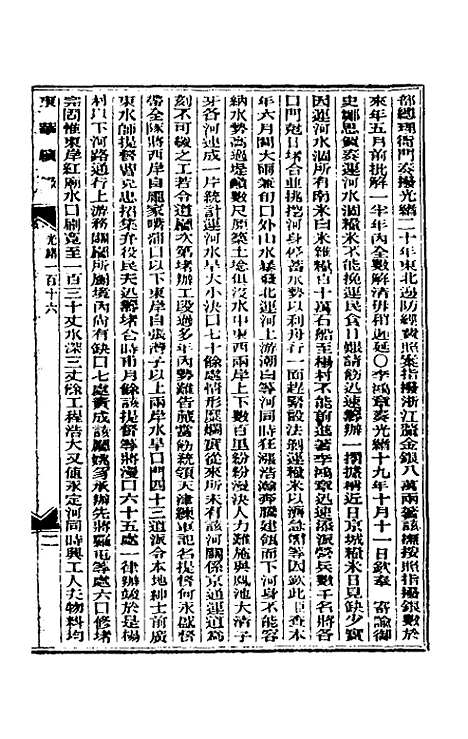 部總理衙門奏撥光緒二十年東北邊防經費照案指撥浙江釐金銀八萬兩著該撫按照指撥銀數於
來年五月前批解一半年內全數解清毋稍延〇李鴻章奏光緒十九年十月十一日欽奉 寄諭御
史鄭思賀奏運河水涸糧米不能挽運民食日艱請飭迅速籌辦一摺據稱近日京城糧米日見缺少實
因運河水涸所有南米白米雜糧百十萬石船至楊村不能前進著李鴻章迅速添派營兵數千名將各
口門尅日堵合並挑挖河身停蓄水勢以利舟行一面趕緊設法剝運糧米以濟急需等因欽此臣查本
年六月間大雨兼旬口外山水暴發北運河上游潮白等河同時狂漲浩瀚奔騰建瓴而下河身不能容
納水勢高過堤顛數尺原築土埝俱沒水中東西兩岸上下數百里紛紛漫決人力難施與鳳池大清子
牙各河連成一片統計運河水旱大小決口七十餘處情形糜爛實從來所未有該河關係京通運道爲
刻不可緩之工若令道廳次第堵辦工段過多年內勢難告蕆當飭統領天津練軍記名提督何永盛督
帶全隊將西岸自龐家嘴蒲口以下東岸自張灣子以上兩岸水旱口門四十三道派令本地紳士前廣
東水師提督曹克忠招集弁役民夫迅籌堵合時甫月餘該提督等將漫口六十五處一律辦竣於是楊
村以下河路通行上游務關廳所屬境內尚有缺口七處責成該廳姚多承辦先將籬屯等處六口修堵
完固惟東岸紅廟水口刷寬至一百三十丈水深三丈餘工程浩大又値永定河同時興工人夫物料均
東華續錄 光緒一百十六 二